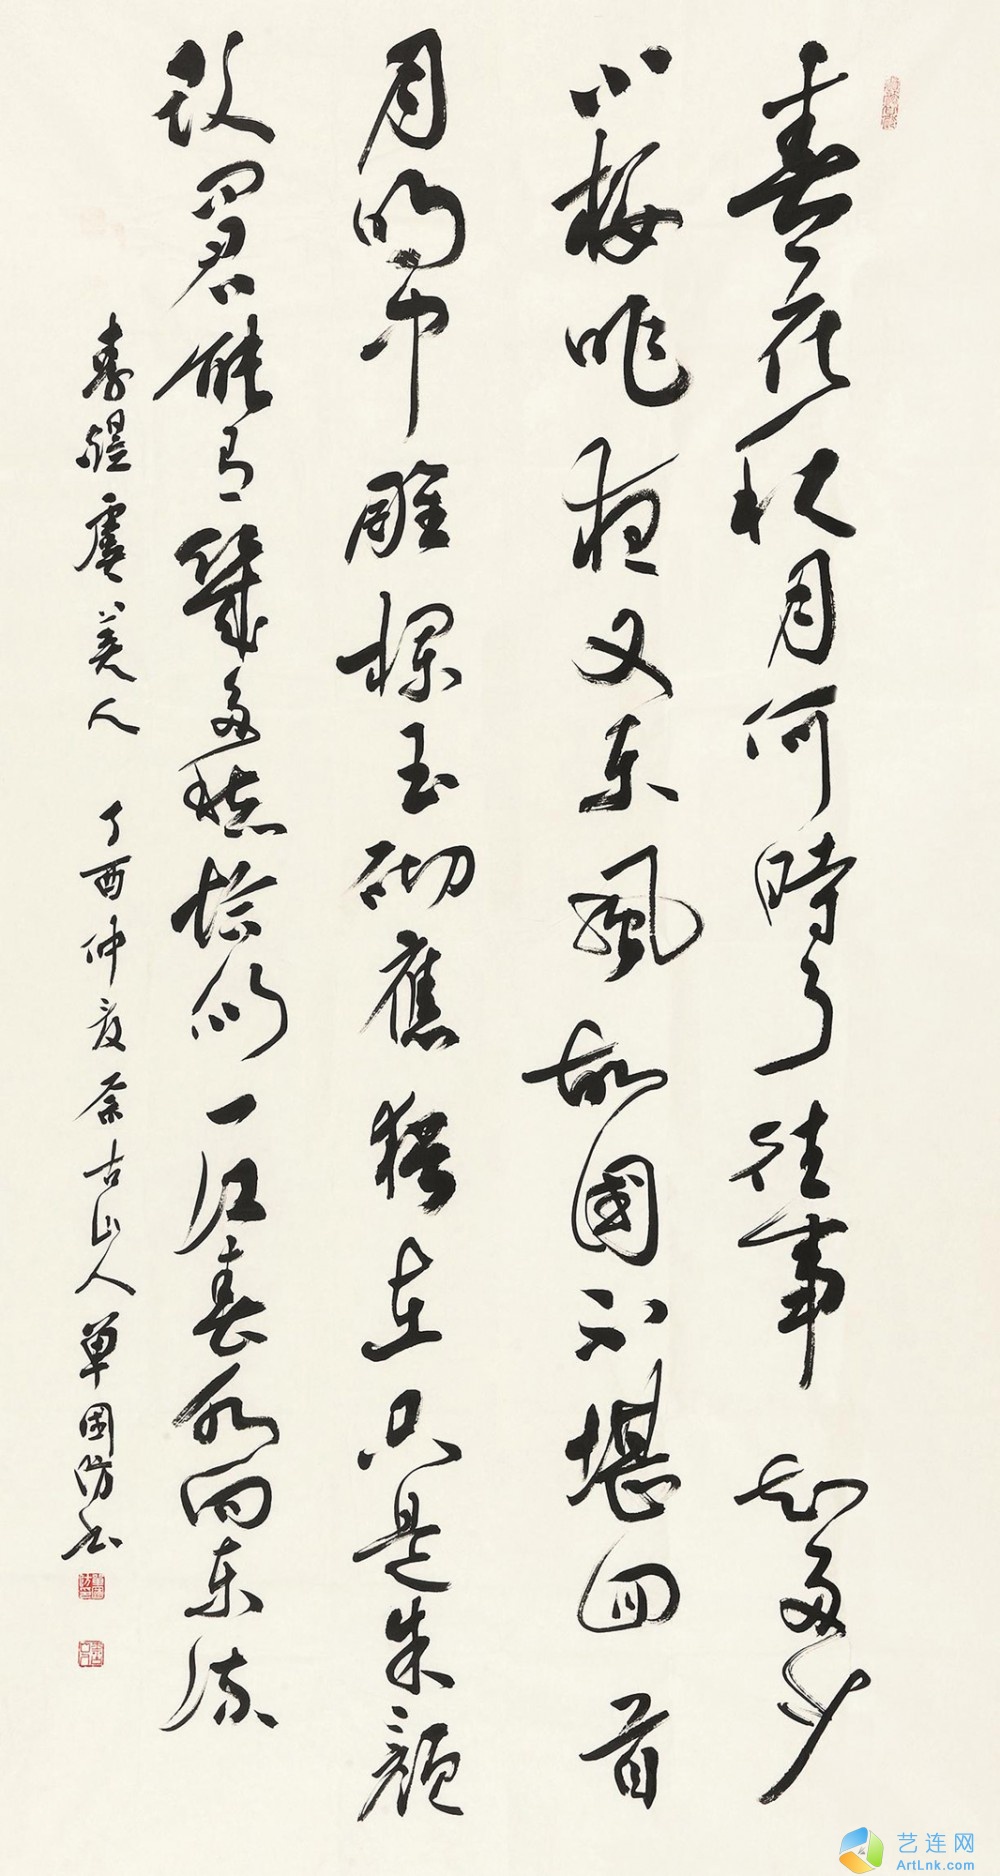 春花秋月何時了往事知多少
小樓昨夜又東風故國不堪回首
月明中雕欄玉砌應猶在只是朱顏
改問君能有幾多愁恰似一江春水向東流
李煜虞美人 丁酉仲夏古山人單國防書
艺连网
ArtLnk.com